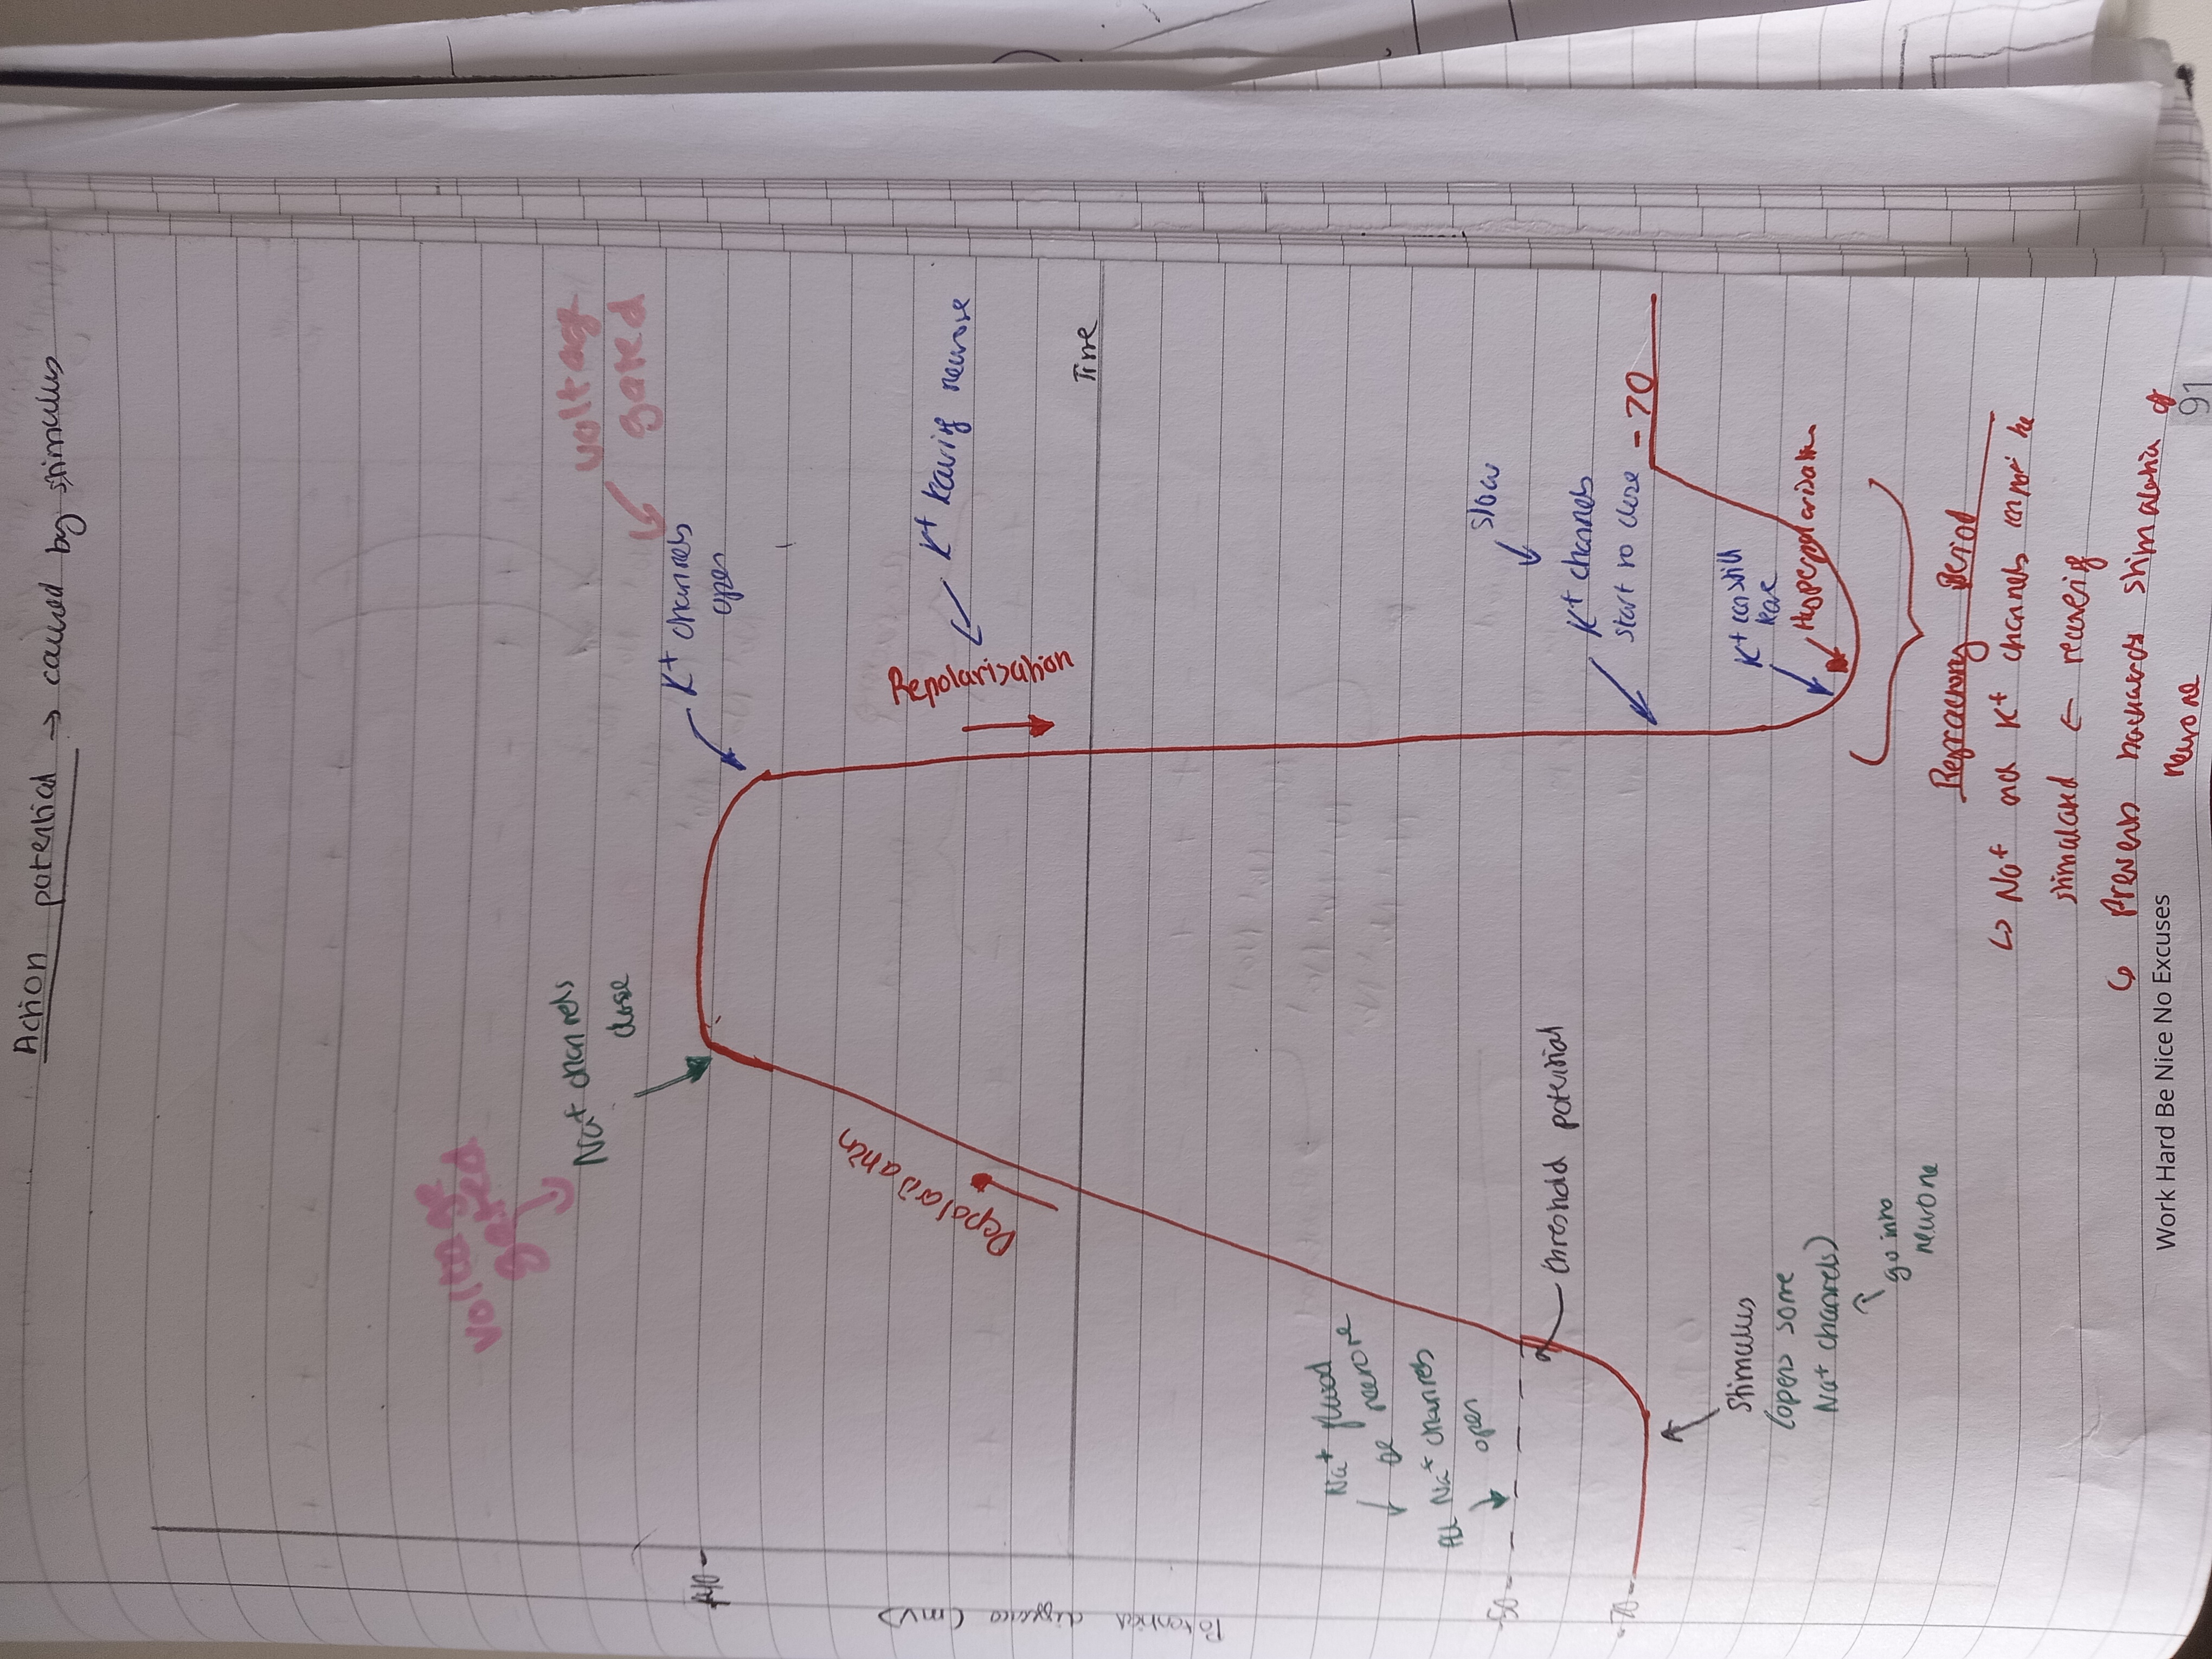 Action potential → caused by stimulus
voltage
gated
voltag
gated
Na+ channels
close
K+ channels
open
+40
Potential differece (mV)
Depolarisation
Repolarisation
K+ leaving neurose
Time
Na+ flood
neurone
All Na+ channels
open
-50
threshold potential
slow
K+ channels
start to close
-70
-70
Stimulus
(opens some
Na+ channels)
go into
neurone
K+ can still
leave
Hyperpolarisation
Refractory Period
↳ Na+ and K+ channels cannot be
stimulated ← recovering
↳ Prevents backwards stimulation of
neurone
Work Hard Be Nice No Excuses
91